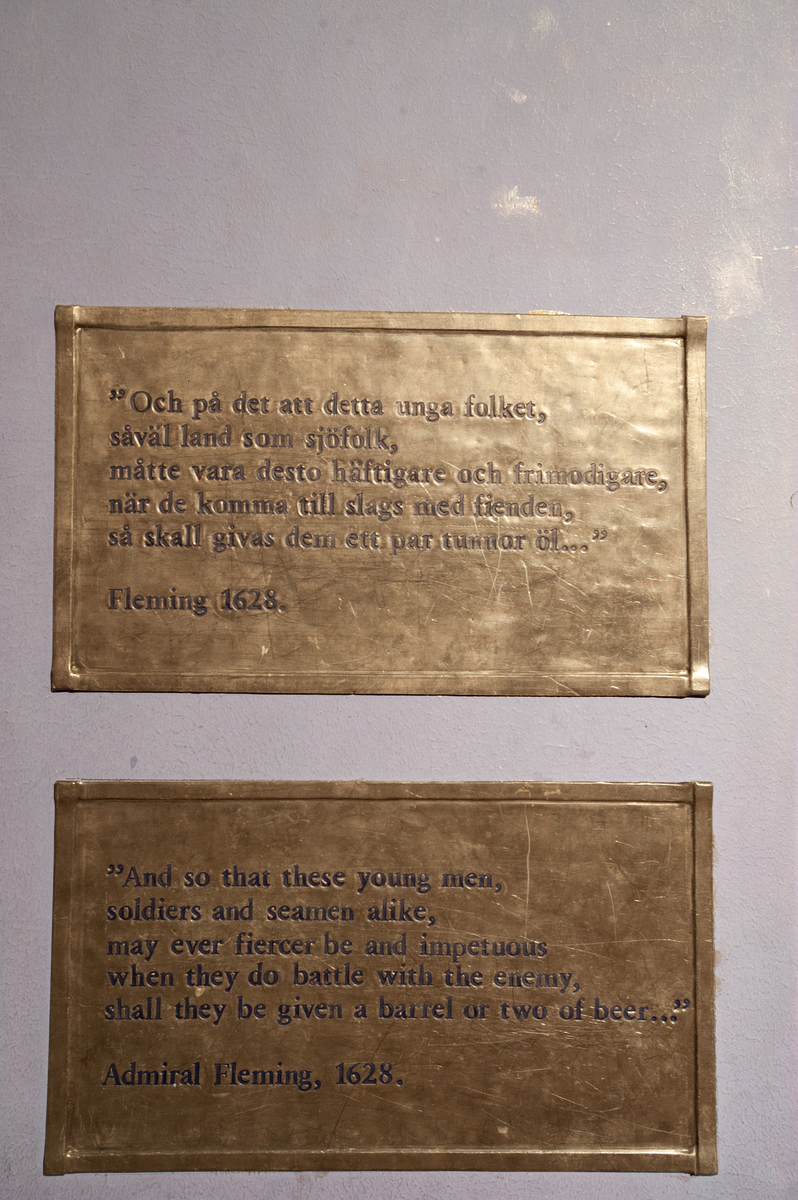 ”Och på det att detta unga folket,
såväl land som sjöfolk,
måtte vara desto häftigare och frimodigare,
när de komma till slags med fienden,
så skall givas dem ett par tunnor öl...”
Fleming 1628.
”And so that these young men,
soldiers and seamen alike,
may ever fiercer be and impetuous
when they do battle with the enemy,
shall they be given a barrel or two of beer...”
Admiral Fleming, 1628.